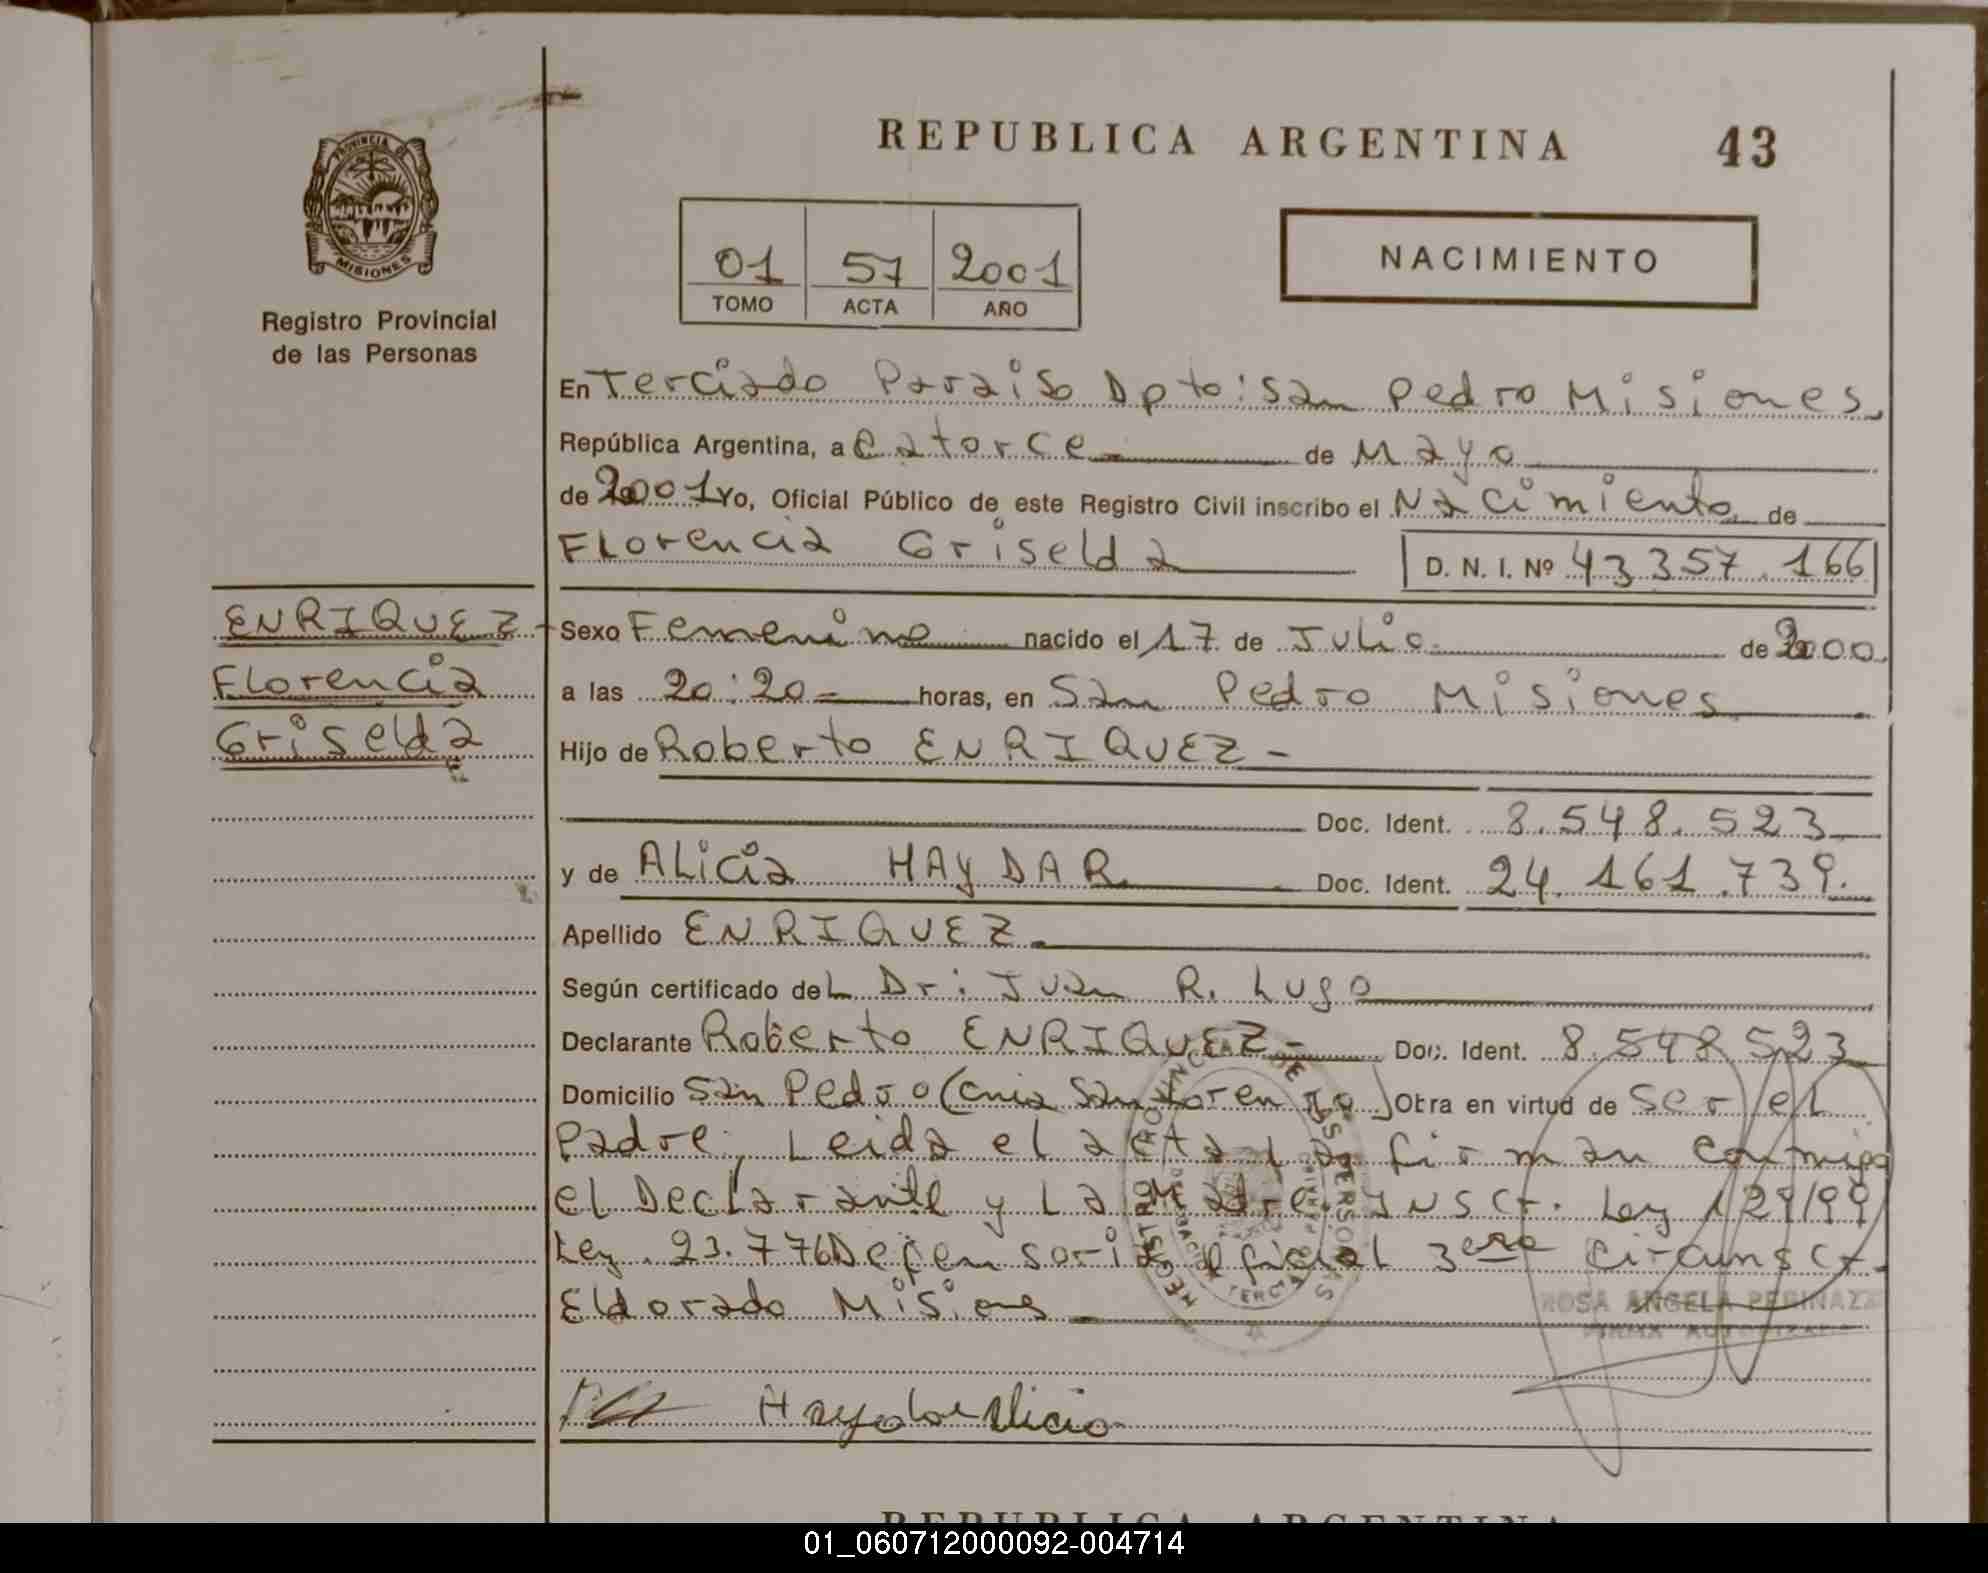 REPUBLICA ARGENTINA 43
PROVINCIA DE
MISIONES
Registro Provincial
de las Personas
01 57 2001
TOMO ACTA AÑO
NACIMIENTO
En Terciado Paraiso Dpto: San Pedro Misiones
República Argentina, a Catorce de Mayo
de 2001 Yo, Oficial Público de este Registro Civil inscribo el Nacimiento de
Florencia Griselda D. N. I. Nº 43 357.166
ENRIQUEZ
Florencia
Griselda
Sexo Femenino nacido el 17 de Julio de 2000
a las 20:20 horas, en San Pedro Misiones
Hijo de Roberto ENRIQUEZ -
Doc. Ident. 8.548.523
y de ALicia HAYDAR Doc. Ident. 24.161.739.
Apellido ENRIQUEZ
Según certificado deL Dr: Juan R. Lugo
Declarante Roberto ENRIQUEZ - Doc. Ident. 8.548.523
Domicilio San Pedro (Cnia San Lorenzo) Otra en virtud de ser el
Padre; Leida el acta La firman conmigo
el Declarante y La Madre. INSCr. Ley 129/99
Ley 23.776 Defensoria Oficial 3era Circunscr.
Eldorado Misiones
ROSA ANGELA PERINAZZ
FIRMA AUTORIZADA
Haydar Alicia
REPUBLICA ARGENTINA
01_060712000092-004714